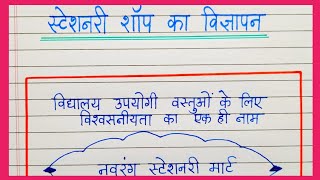 स्टेशनरी शॉप का विज्ञापन
विद्यालय उपयोगी वस्तुओं के लिए
विश्वसनीयता का एक ही नाम
नवरंग स्टेशनरी मार्ट